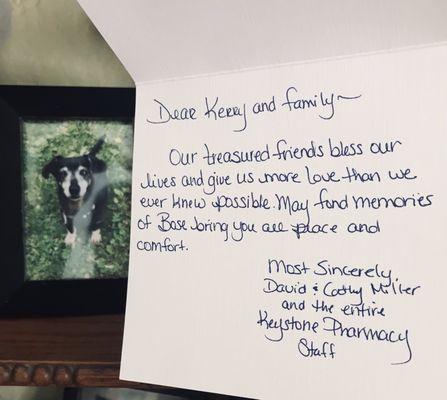 Dear Kerry and family~
Our treasured friends bless our
lives and give us more love than we
ever knew possible. May fond memories
of Base bring you all place and
comfort.
Most Sincerely,
David & Cathy Miller
and the entire
Keystone Pharmacy
Staff